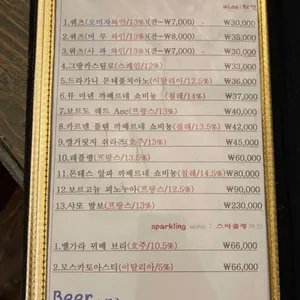 1.퀴즈(오미자와인/13%)(잔-₩7,000) ₩30,000
2.퀴즈(머 루 와인/13%)(잔-₩8,000) ₩35,000
3.퀴즈(사 과 와인/13%) ₩30,000
4.그랑카스틸로(스페인/12%) ₩33,000
5.드라가니 몬테풀치아노(이탈리아/12.5%) ₩36,000
6.뮤 마넨 까베르네 쇼비뇽 (칠레/14%) ₩37,000
7.보르도 레드 Aoc(프랑스/13%) ₩40,000
8.카르멘 톨텐 까베르네 쇼비뇽(칠레/13.5%) ₩42,000
9.캥거릿지 쉬라즈(호주/13%) ₩45,000
10.래플램(프랑스/13.5%) ₩60,000
11.몬테스 알파 까베르네 쇼비뇽(칠레/14.5%) ₩80,000
12.보르고뉴 피노누아(프랑스/12.5%) ₩90,000
13.샤또 딸보(프랑스/13%) ₩230,000
sparkling wine : 스파클링와인
1.벨가라 뀌베 브리(호주/10.5%) ₩66,000
2.모스카토아스티(이탈리아/5%) ₩66,000
Beer